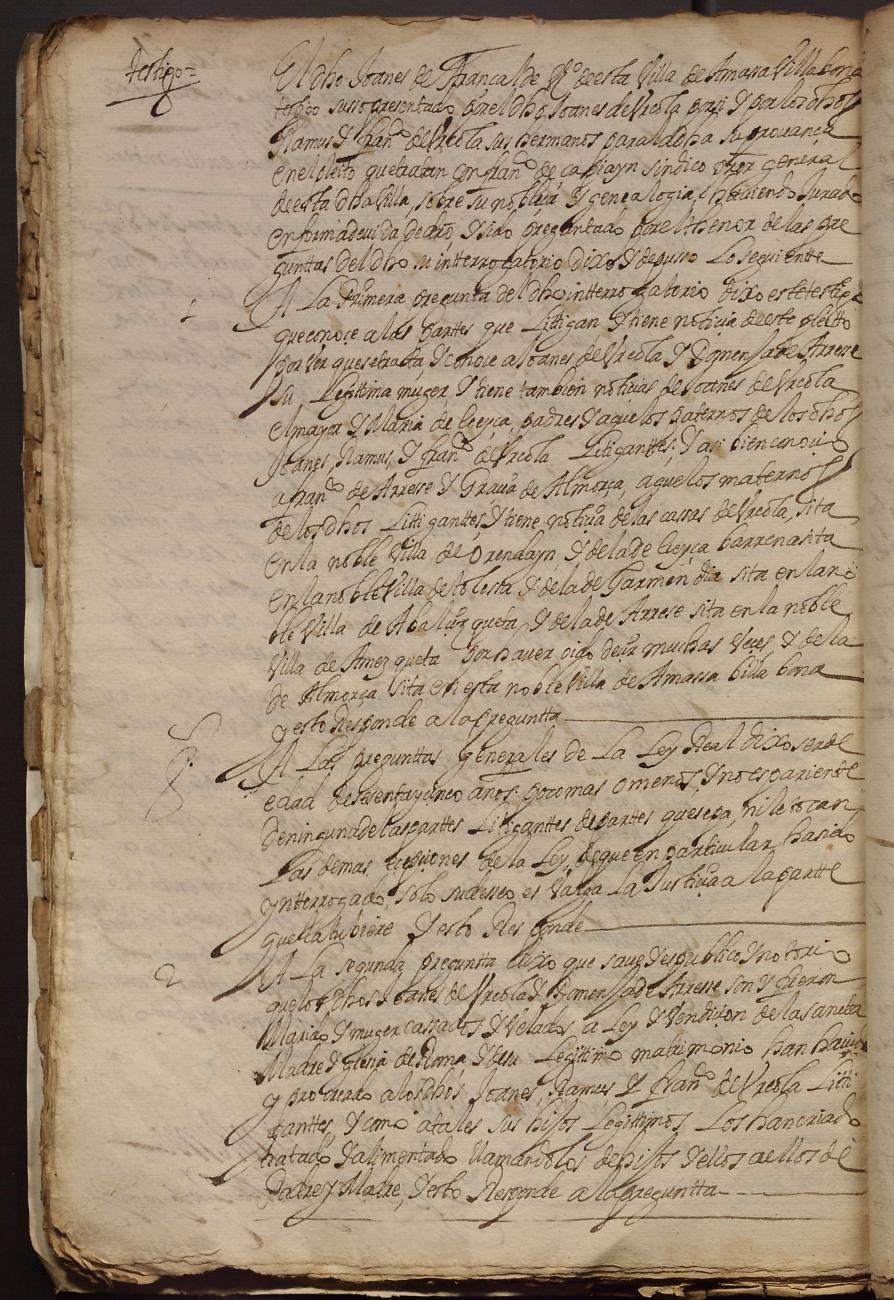 testigo =
El dho Joanes de França alde Vº de esta Villa de Amasa Villa bona
testigo susso presentado por el dho Joanes de Vrcola por si y por los dhos
Ramus y franco de Vrcola sus hermanos para la dha su provança
en el pleito que tratan con franco de cabiayn sindico pror general
de esta dha Villa, sobre su nobleza y genealogia, haviendo Jurado
en forma devida de dro, y sido preguntado por el thenor de las pre
gunttas del dho su intterrogatorio dixo y depusso lo seguientte
1
A La Primera pregunta del dho intterrogatorio dixo este testigo
que conoçe a las partes que Littigan y tiene noticia de este pleitto
por ver que se trata, y conoce a Joanes de Vrcola y Domenja de Arresse
su Legittima muger, y tiene tambien noticias de Joanes de Vrcola
el mayor y Maria de Leyça, padres y aguelos paternos de los dhos
Joanes, Ramus, y franco de Vrcola Litiganttes; y asi bien conoçio
a franco de Arrese y Graçia de Almorça, aguelos maternos
de los dhos Littiganttes, y tiene noticia de las cassas de Vrcola, sita
en la noble Villa de Orendayn, y de la de Leyça barrena sita
en la noble Villa de tolosa y de la de Garmendia sita en la no
ble Villa de Abalizqueta, y de la de Arrese sita en la noble
Villa de Amezqueta por haver oido decir muchas veçes y de la
de Almorça sita en esta noble Villa de Amassa billa bona
y esto Responde a la pregunta
A Las pregunttas generales de La Ley Real dixo ser de
edad de sesenta y cinco años poco mas o menos, y no es pariente
de ninguna de las parttes Litiganttes de partes que sepa, ni le tocan
Las demas eçepsiones de la Ley, de que en particular ha sido
ynterrogado, solo su desseo es Valga La Justicia a la partte
que la tubiere y esto Responde
2
A La segunda pregunta dixo que save y es publico y notorio
que los dhos Joanes de Vrcola y Domenja de Arresse son y fueron
Marido y muger cassados y Velados a Ley y Vendicion de la sancta
Madre yglesia de Roma y de su Legittimo matrimonio han havido
y procreado a los dhos Joanes, Ramus y franco de Vrcola Litti
ganttes, y como a tales sus hijos Legittimos Los han criado
tratado y alimentado llamandolos de hijos y ellos a ellos de
Padre y Madre, y esto Responde a la pregunta